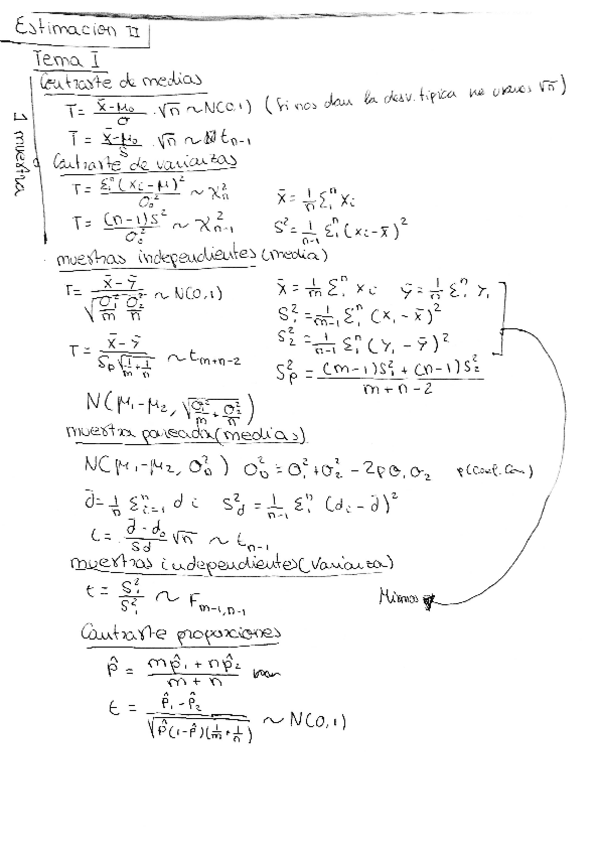 Estimacion II
Tema I
Contraste de medias
T = (x̄ - μ₀)/σ · √n ~ N(0,1) (Si nos dan la desv. tipica no usamos √n)
T = (x̄ - μ₀)/S · √n ~ t_{n-1}
1 muestra
Contraste de varianzas
T = Σ₁ⁿ(xᵢ - μ)²/σ₀² ~ χ²_n    x̄ = 1/n Σ₁ⁿ xᵢ
T = (n-1)S²/σ₀² ~ χ²_{n-1}    S² = 1/(n-1) Σ₁ⁿ (xᵢ - x̄)²
muestras independientes (media)
T = (x̄ - ȳ)/√(σ₁²/m σ₂²/n) ~ N(0,1)    x̄ = 1/m Σ₁ⁿ xᵢ    ȳ = 1/n Σ₁ⁿ Y₁
S₁² = 1/(m-1) Σ₁ⁿ (x₁ - x̄)²
T = (x̄ - ȳ)/(Sp √(1/m + 1/n)) ~ t_{m+n-2}    S₂² = 1/(n-1) Σ₁ⁿ (Y₁ - ȳ)²
Sp² = ((m-1)S₁² + (n-1)S₂²)/(m+n-2)
N(μ₁ - μ₂, √(σ₁²/m + σ₂²/n))
muestra pareada (medias)
N(μ₁ - μ₂, σ_D²)    σ_D² = σ₁² + σ₂² - 2ρσ₁σ₂    ρ(Coef. Corr.)
d̄ = 1/n Σⁿᵢ₌₁ dᵢ    S_d² = 1/(n-1) Σ₁ⁿ (dᵢ - d̄)²
t = (d̄ - d₀)/Sd √n ~ t_{n-1}
muestras independientes (Varianza)
t = S₁²/S₁² ~ F_{m-1,n-1}    Mismos
Contraste proporciones
p̂ = (mp̂₁ + np̂₂)/(m+n)
t = (p̂₁ - p̂₂)/√(p̂(1-p̂)(1/m + 1/n)) ~ N(0,1)